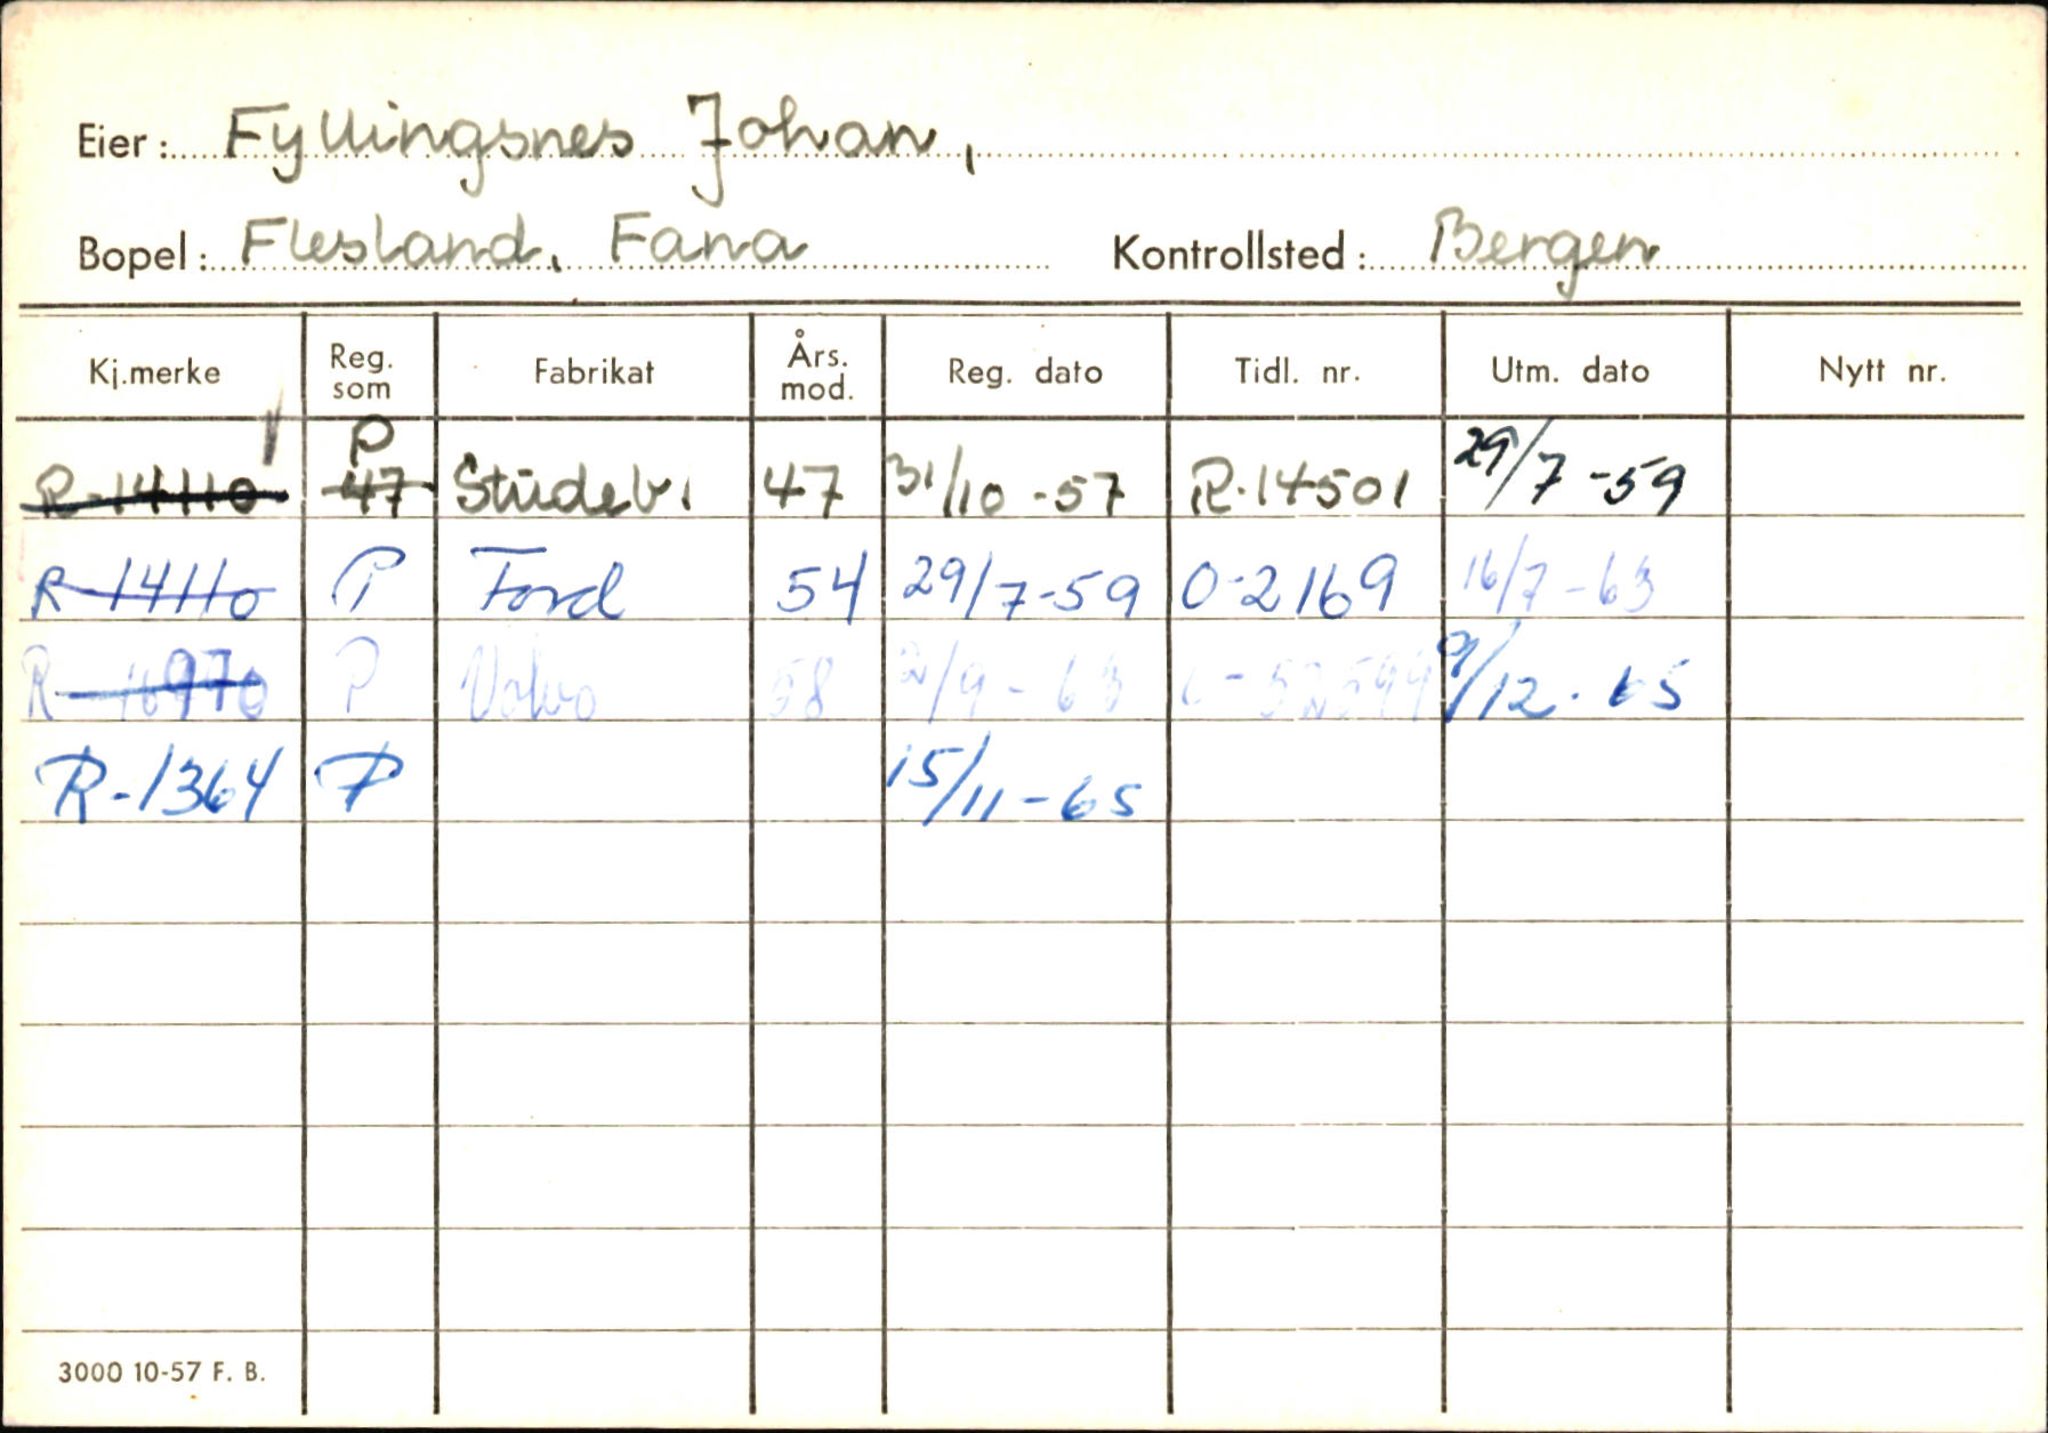 Eier: Fyllingsnes Johan,
Bopel: Flesland, Fana Kontrollsted: Bergen
Kj.merke Reg. som Fabrikat Års. mod. Reg. dato Tidl. nr. Utm. dato Nytt nr.
R-14110 P 47 Studeb. 47 31/10-57 R-14501 29/7-59
R-14110 P Ford 54 29/7-59 O-2169 16/7-63
P Volvo 58 9/12-65
R-1364 P 15/11-65
3000 10-57 F. B.